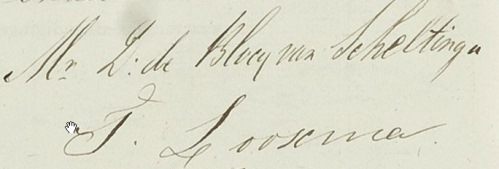 Mr. D: de Blocq van Scheltinga
F. Looxma